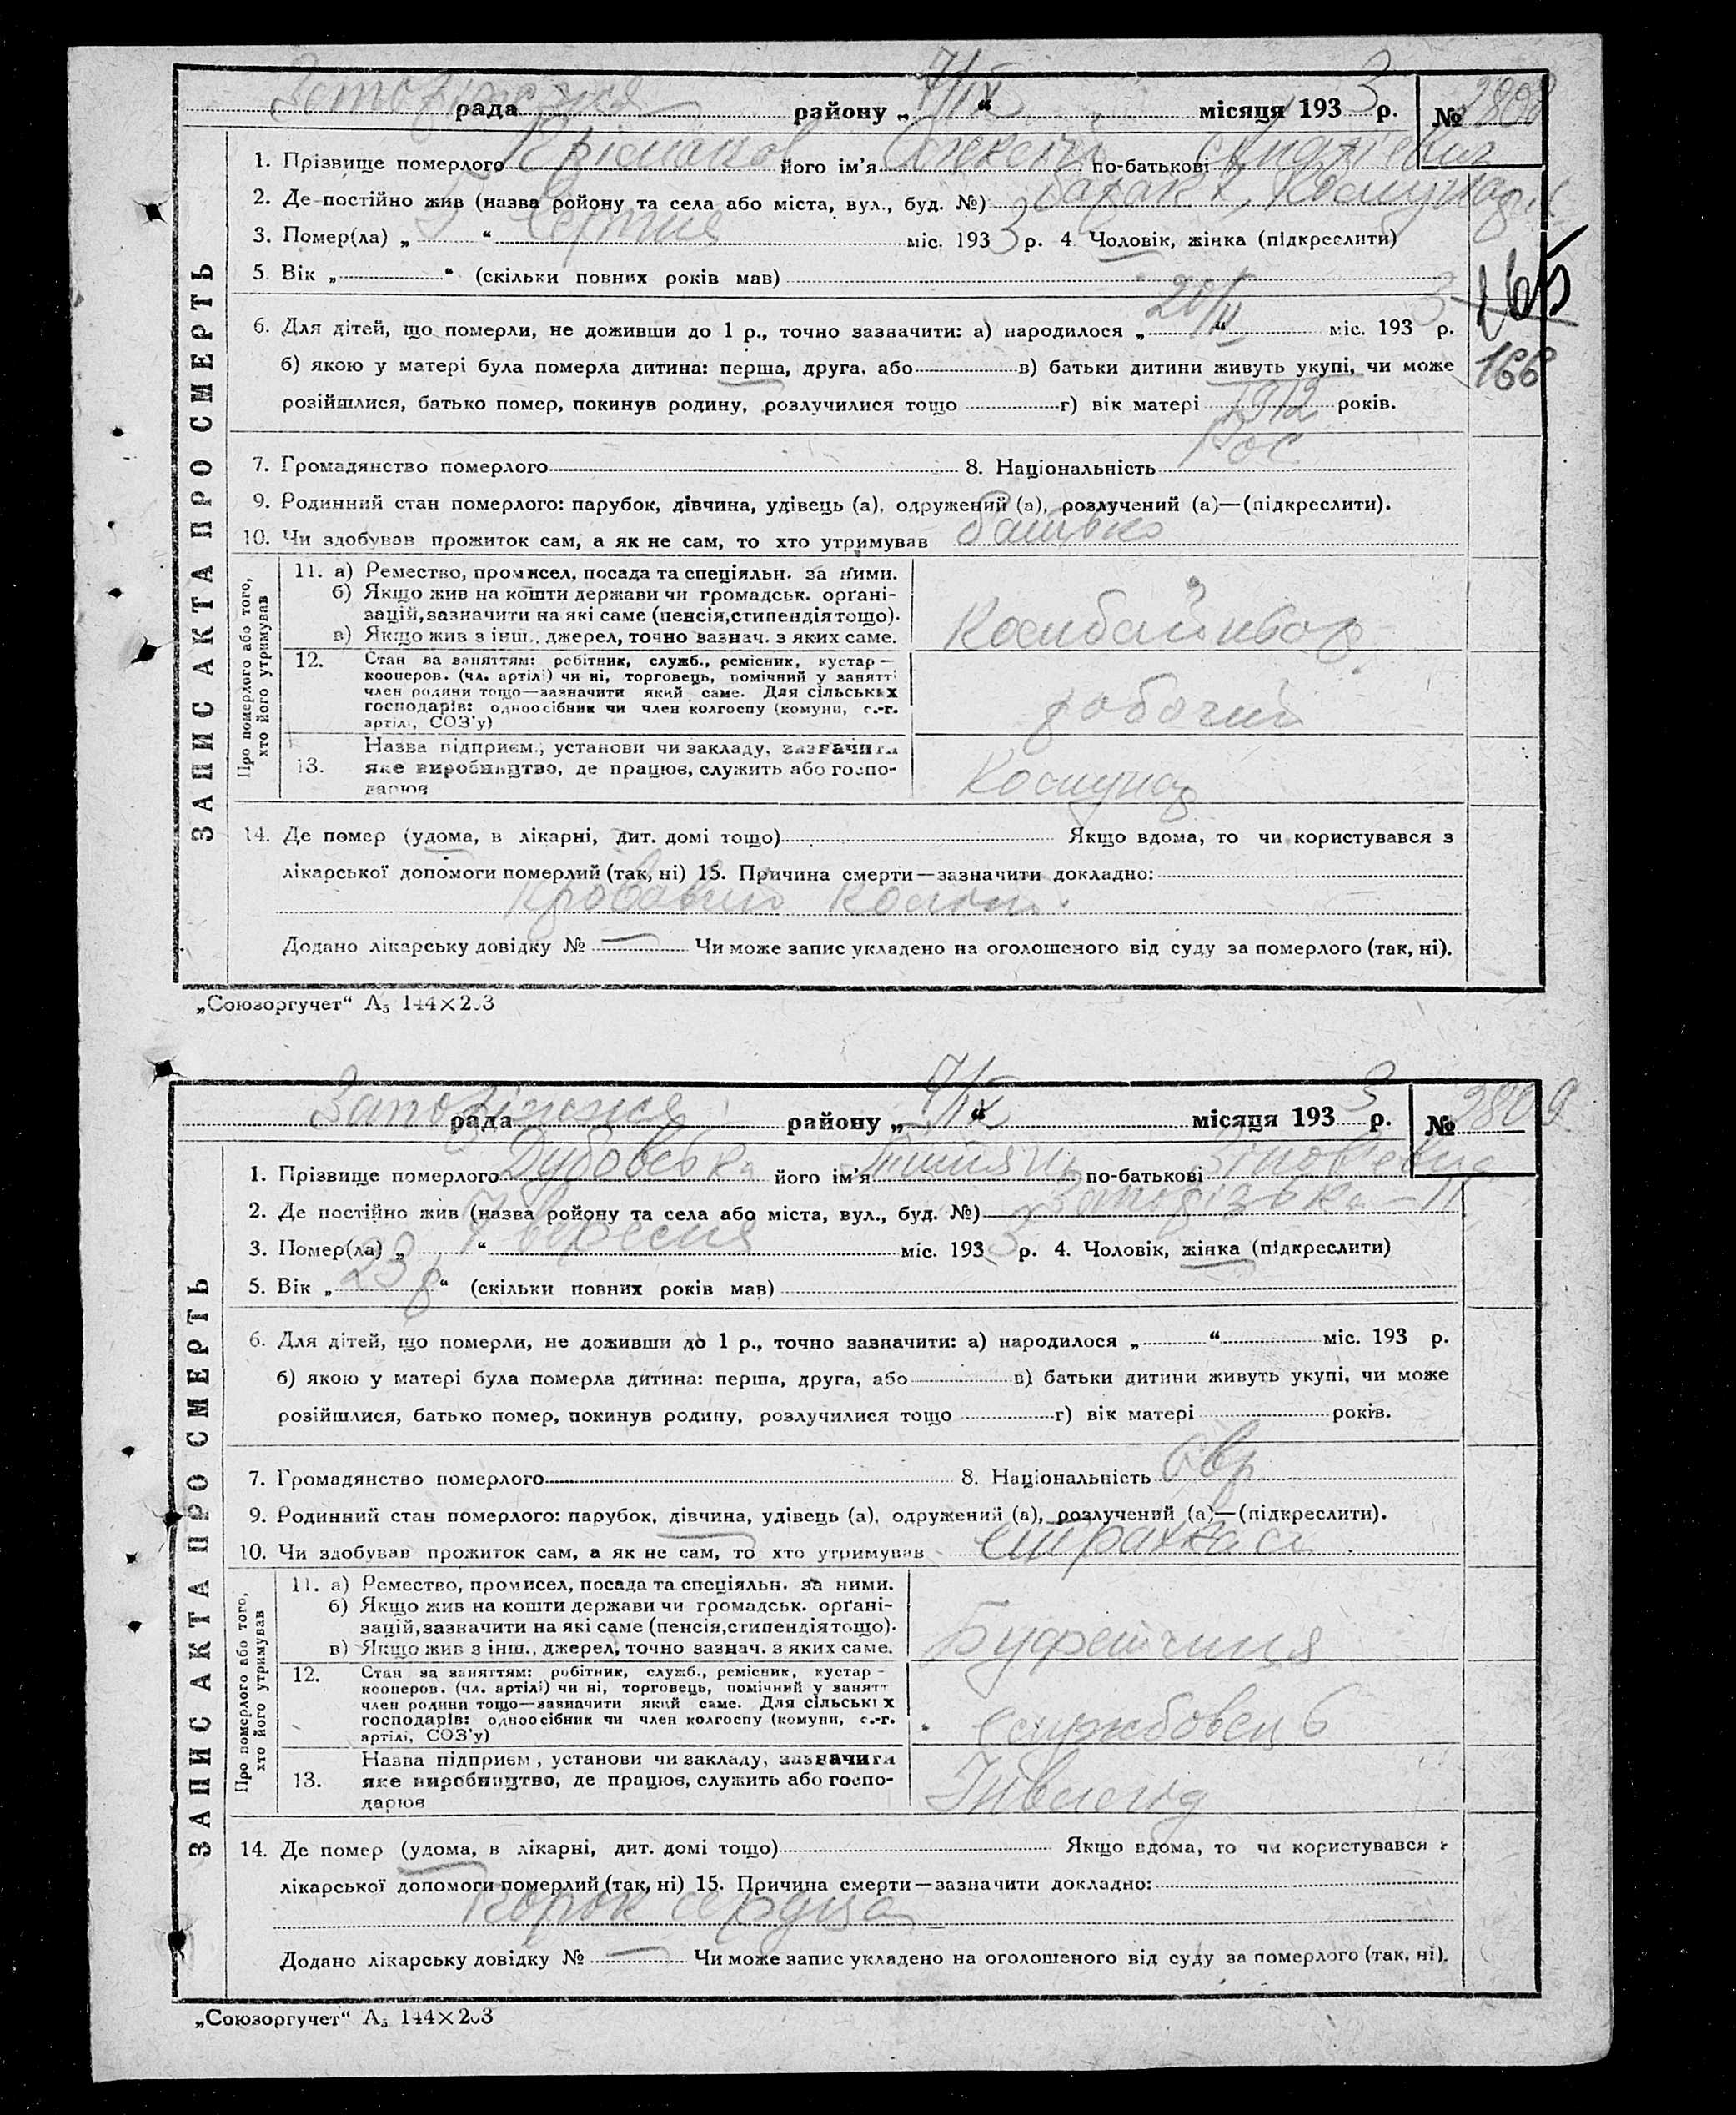 рада району „ 7/IX “ місяця 193 3 р. № 2808
ЗАПИС АКТА ПРО СМЕРТЬ
1. Прізвище померлого його ім'я Олексій по-батькові
2. Де постійно жив (назва ройону та села або міста, вул., буд. №) барак Комунар
3. Помер(ла) „ 5 “ Серпня міс. 193 3 р. 4. Чоловік, жінка (підкреслити)
5. Вік „ “ (скільки повних років мав)
165
6. Для дітей, що померли, не доживши до 1 р., точно зазначити: а) народилося „ 20/II “ міс. 193 3 р.
б) якою у матері була померла дитина: перша, друга, або в) батьки дитини живуть укупі, чи може
166
розійшлися, батько помер, покинув родину, розлучилися тощо г) вік матері 1912 років.
7. Громадянство померлого 8. Національність Рос
9. Родинний стан померлого: парубок, дівчина, удівець (а), одружений (а), розлучений (а)—(підкреслити).
10. Чи здобував прожиток сам, а як не сам, то хто утримував батько
Про померлого або того, хто його утримував
11. а) Ремество, промисел, посада та спеціяльн. за ними.
б) Якщо жив на кошти держави чи громадськ. орґані-
зацій, зазначити на які саме (пенсія, стипендія тощо).
в) Якщо жив з інш., джерел, точно зазнач. з яких саме.
Комбайнвор
12. Стан за заняттям: робітник, служб., ремісник, кустар —
кооперов. (чл. артілі) чи ні, торговець, помічний у занятті
член родини тощо—зазначити який саме. Для сільських
господарів: одноосібник чи член колгоспу (комуни, с.-г.
артілі, СОЗ'у)
робочий
13. Назва підприєм., установи чи закладу, зазначити
яке виробництво, де працює, служить або госпо-
дарює
Комунар
14. Де помер (удома, в лікарні, дит. домі тощо) Якщо вдома, то чи користувався з
лікарської допомоги померлий (так, ні) 15. Причина смерти—зазначити докладно:
Кровавий
Додано лікарську довідку № — Чи може запис укладено на оголошеного від суду за померлого (так, ні).
„Союзоргучет“ А₅ 144×203
рада району „ 7/IX “ місяця 193 3 р. № 2809
ЗАПИС АКТА ПРО СМЕРТЬ
1. Прізвище померлого Дубовська його ім'я по-батькові Зінов'евна
2. Де постійно жив (назва ройону та села або міста, вул., буд. №)
3. Помер(ла) „ 7 “ вересня міс. 193 3 р. 4. Чоловік, жінка (підкреслити)
5. Вік „ 23 р “ (скільки повних років мав)
6. Для дітей, що померли, не доживши до 1 р., точно зазначити: а) народилося „ “ міс. 193 р.
б) якою у матері була померла дитина: перша, друга, або в) батьки дитини живуть укупі, чи може
розійшлися, батько помер, покинув родину, розлучилися тощо г) вік матері років.
7. Громадянство померлого 8. Національність Євр
9. Родинний стан померлого: парубок, дівчина, удівець (а), одружений (а), розлучений (а)—(підкреслити).
10. Чи здобував прожиток сам, а як не сам, то хто утримував страхкаса
Про померлого або того, хто його утримував
11. а) Ремество, промисел, посада та спеціяльн. за ними.
б) Якщо жив на кошти держави чи громадськ. орґані-
зацій, зазначити на які саме (пенсія, стипендія тощо).
в) Якщо жив з інш., джерел, точно зазнач. з яких саме.
Буфетчиця
12. Стан за заняттям: робітник, служб., ремісник, кустар -
кооперов. (чл. артілі) чи ні, торговець, помічний у занятт
член родини тощо—зазначити який саме. Для сільських
господарів: одноосібник чи член колгоспу (комуни, с.-г.
артілі, СОЗ'у)
службовець
13. Назва підприєм, установи чи закладу, зазначити
яке виробництво, де працює, служить або госпо-
дарює
Інвалид
14. Де помер (удома, в лікарні, дит. домі тощо) Якщо вдома, то чи користувався з
лікарської допомоги померлий (так, ні) 15. Причина смерти—зазначити докладно:
Порок сердца
Додано лікарську довідку № — Чи може запис укладено на оголошеного від суду за померлого (так, ні).
„Союзоргучет“ А₅ 144×203